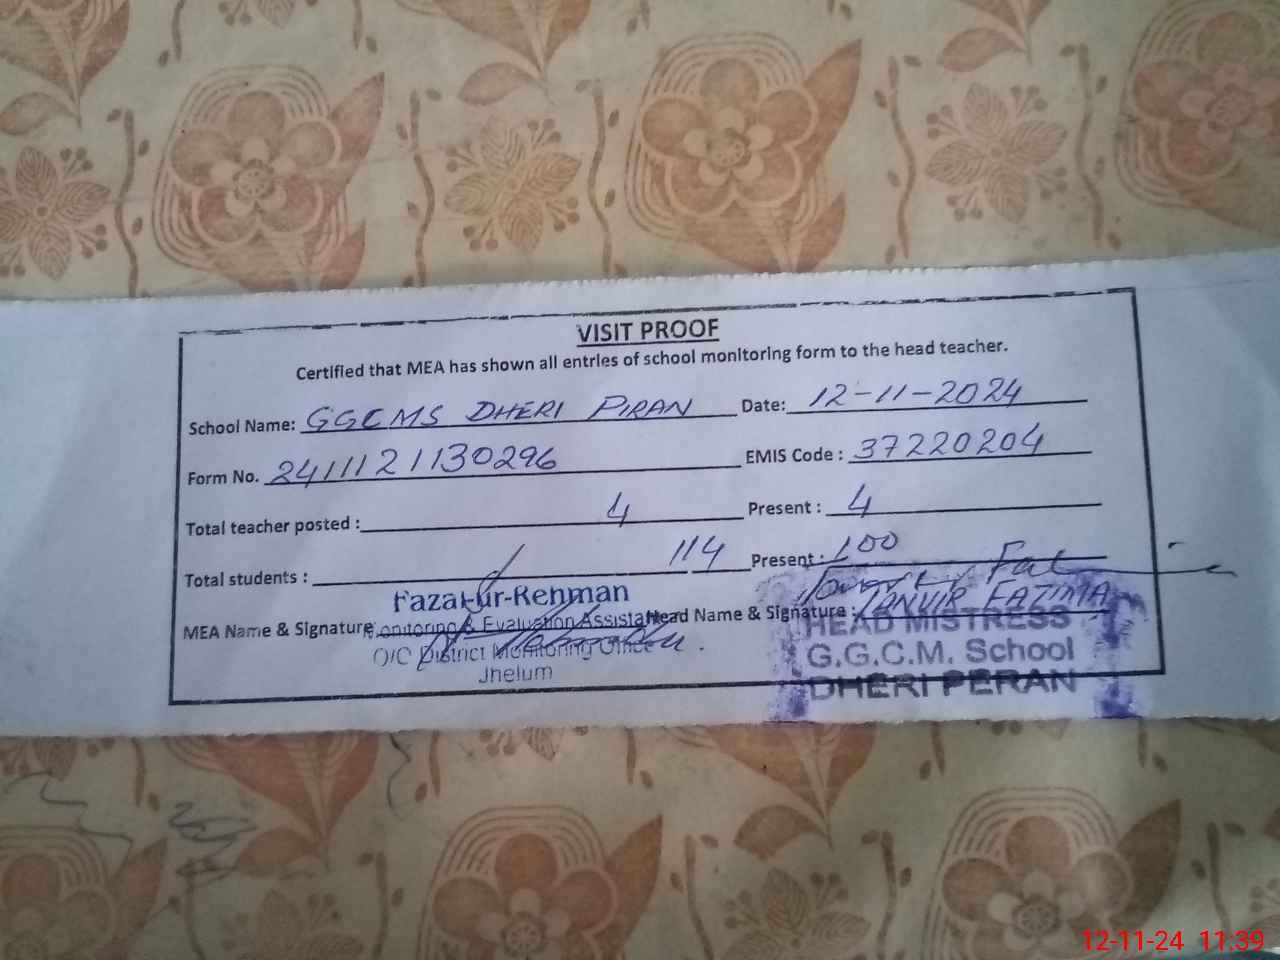 VISIT PROOF
Certified that MEA has shown all entries of school monitoring form to the head teacher.
School Name: GGCMS DHERI PIRAN Date: 12-11-2024
Form No. 2411121130296 EMIS Code : 37220204
Total teacher posted : 4 Present : 4
Total students : 114 Present : 100
Fazal-ur-Rehman
MEA Name & Signature Head Name & Signature : TANVIR FATIMA
Monitoring & Evaluation Assistant
O/O District Monitoring Office
Jhelum
HEAD MISTRESS
G.G.C.M. School
DHERI PERAN
12-11-24 11:39